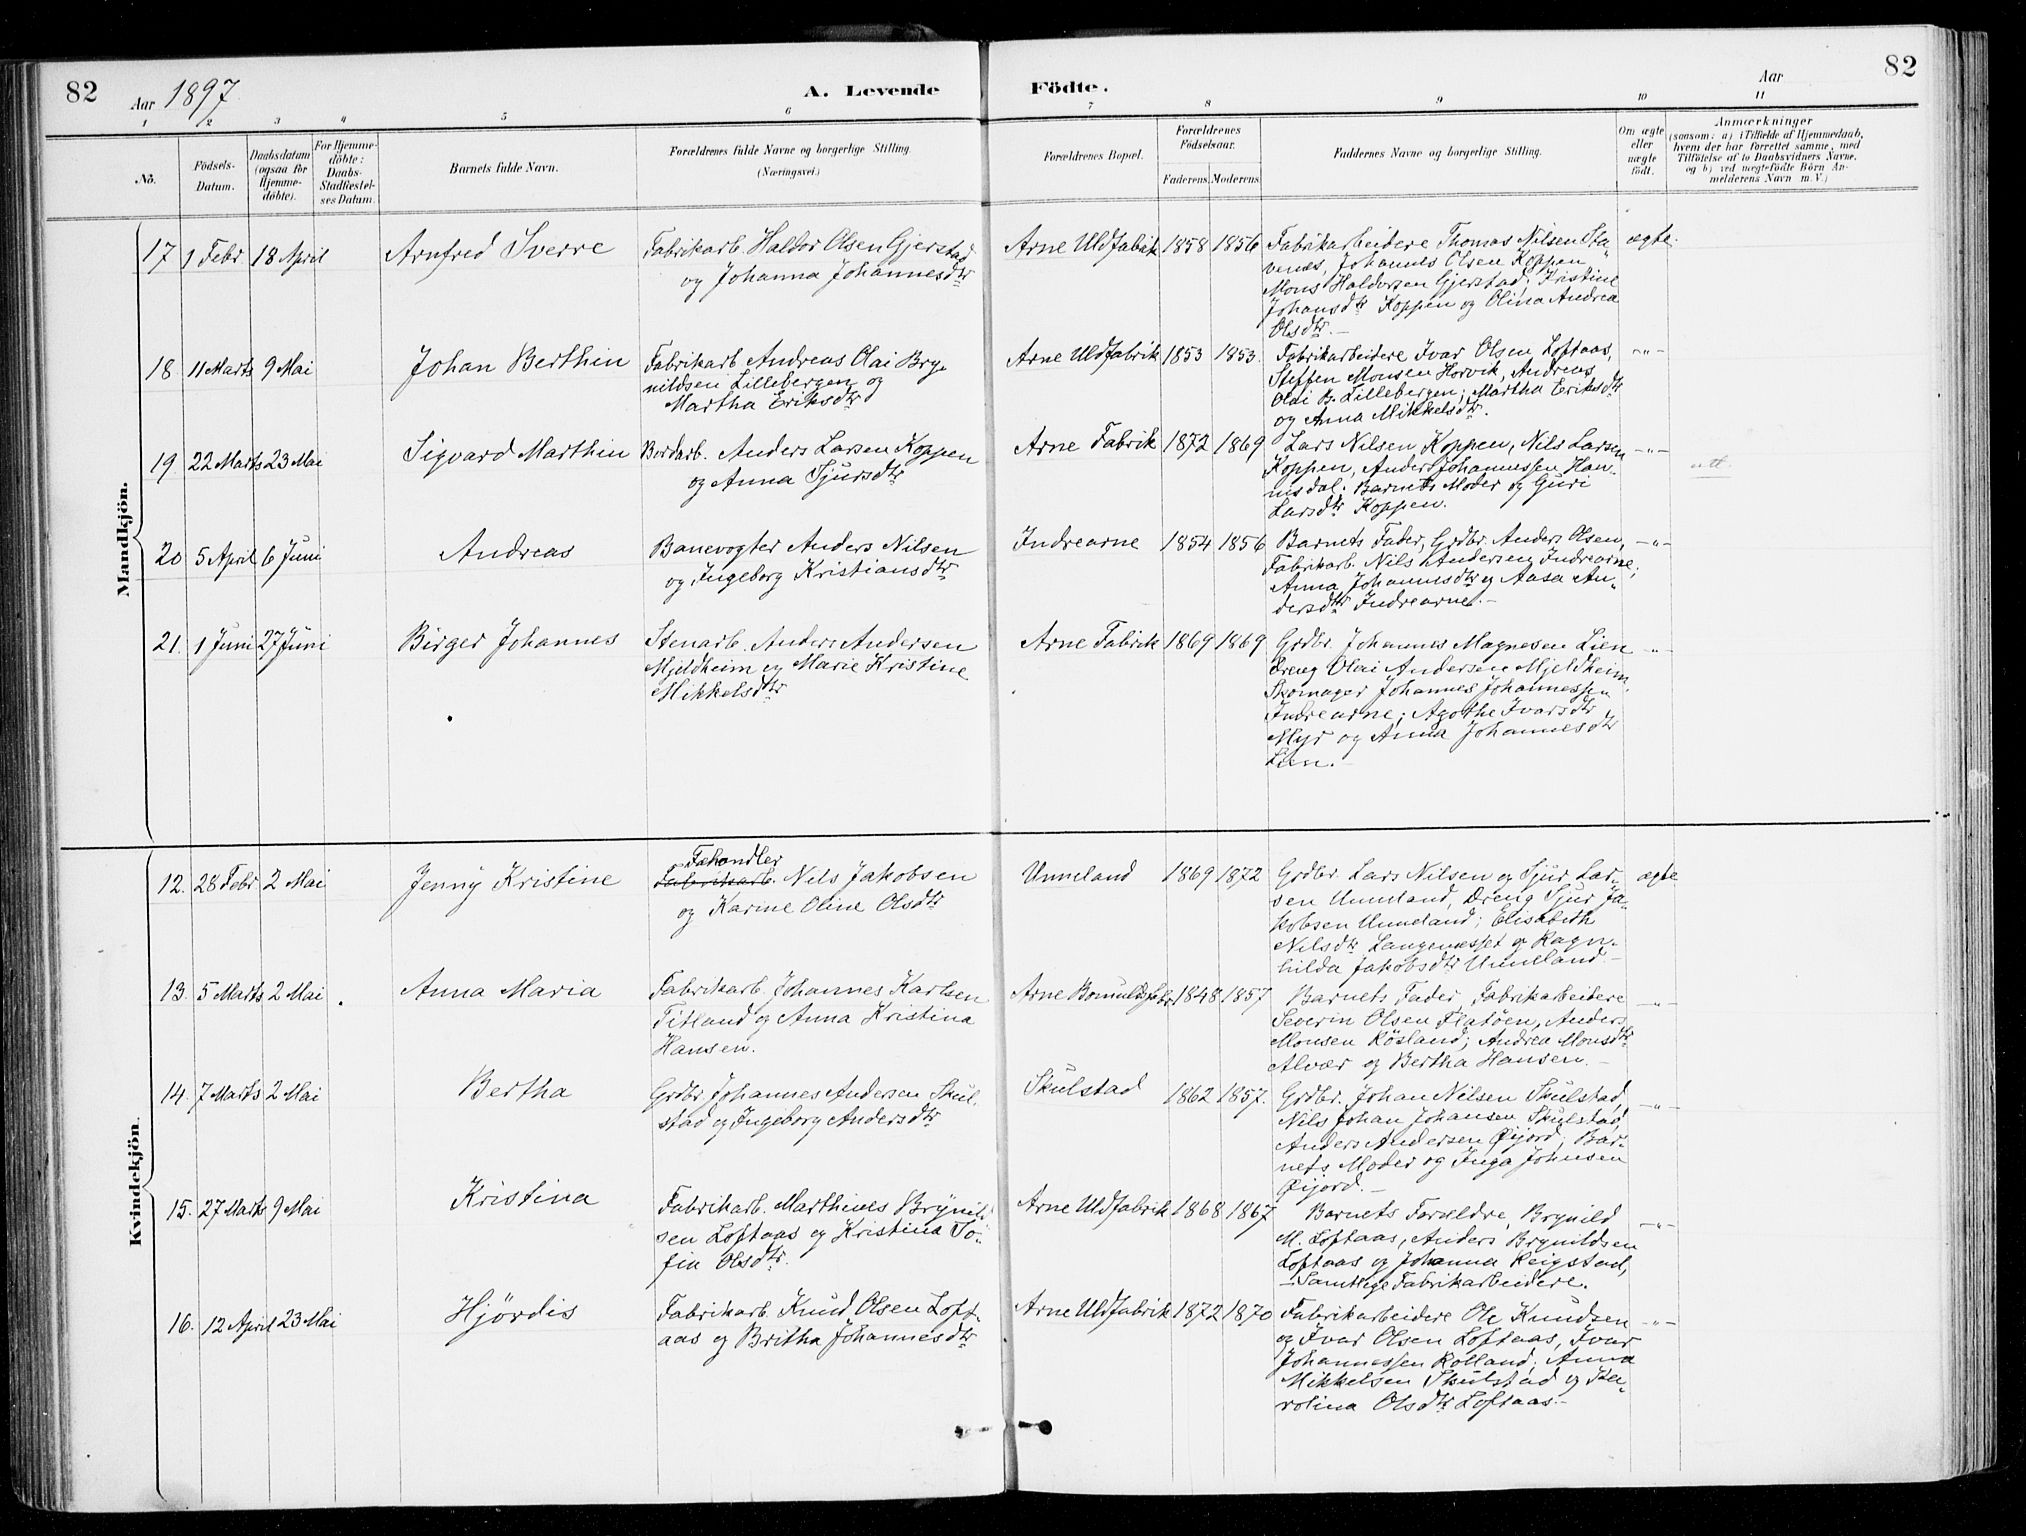 82
Aar 1897.
A. Levende
Födte.
Aar
82
1 2 3 4 5 6 7 8 9 10 11
No.
Födsels-
Datum.
Daabsdatum
(ogsaa for
Hjemme-
döbte).
For Hjemme-
döbte:
Daabs-
Stadfæstel-
ses Datum.
Barnets fulde Navn.
Forældrenes fulde Navne og borgerlige Stilling.
(Næringsvei.)
Forældrenes Bopæl.
Forældrenes
Födselsaar.
Faderens. Moderens.
Faddernes Navne og borgerlige Stilling.
Om ægte
eller
uægte
födt.
Anmærkninger
(saasom: a) i Tilfælde af Hjemmedaab,
hvem der har forrettet samme, med
Tilföielse af to Daabsvidners Navne,
og b) ved uægtefödte Börn An-
melderens Navn m. V.)
Mandkjön.
17 1 Febr 18 April Arnfred Sverre
Fabrikarb. Haldor Olsen Gjerstad
og Johanna Johannesdtr
Arne Uldfabrik 1858 1856
Fabrikarbeidere Thomas Nilsen Sta-
venes, Johannes Olsen Koppen
Mons Haldorsen Gjerstad; Kristine
Johansdtr Koppen og Olina Andrea
Olsdtr. —
ægte.
18. 11 Marts 9 Mai Johan Berthin
Fabrikarb Andreas Olai Bry-
nildsen Lillebergen og
Martha Eriksdtr
Arne Uldfabrik 1853 1853.
Fabrikarbeidere Ivar Olsen Loftaas,
Steffen Monsen Horvik, Andreas
Olai B. Lillebergen; Martha Eriksdtr
og Anna Mikkelsdtr.
—"—
19 22 Marts 23 Mai Sigvard Marthin
Bordarb. Anders Larsen Koppen
og Anna Sjursdtr
Arne Fabrik 1872 1869
Lars Nilsen Koppen, Nils Larsen
Koppen, Anders Johannessen Han-
nisdal. Barnets Moder og Guri
Larsdtr Koppen.
—"—
att.
20 5 April 6 Juni Andreas
Banevogter Anders Nilsen
og Ingeborg Kristiansdtr
Indrearne 1854 1856
Barnets Fader, Grdbr. Anders Olsen,
Fabrikarb. Nils Andersen Indrearne;
Anna Johannesdtr og Aasa An-
dersdtr Indrearne. —
—"—
21. 1 Juni 27 Juni Birger Johannes
Stenarb. Anders Andersen
Mjeldheim og Marie Kristine
Mikkelsdtr
Arne Fabrik 1869 1869
Grdbr. Johannes Magnesen Lien
Dreng Olai Andersen Mjeldheim,
Skomager Johannes Johannessen
Indrearne; Agothe Ivarsdtr
Myr og Anna Johannesdtr
Lien. —
—"—
Kvindekjön.
12. 28 Febr 2 Mai Jenny Kristine
Fæhandler
Fabrikarb. Nils Jakobsen
og Karine Oline Olsdtr
Unneland 1869 1872
Grdbr. Lars Nilsen og Sjur Lar-
sen Unneland, Dreng Sjur Ja-
kobsen Unneland; Elisabeth
Nilsdtr Langenesset og Ragn-
hilda Jakobsdtr Unneland. —
ægte
13. 5 Marts 2 Mai Anna Maria
Fabrikarb. Johannes Karlsen
Titland og Anna Kristina
Hansen.
Arne Bomuldsfabr. 1848 1857
Barnets Fader, Fabrikarbeidere
Severin Olsen Flatöen, Anders
Monsen Rösland; Andrea Monsdtr
Alvær og Bertha Hansen. —
—"—
14. 7 Marts 2 Mai Bertha
Grdbr. Johannes Andersen Skul-
stad og Ingeborg Andersdtr
Skulstad 1862 1857.
Grdbr. Johan Nilsen Skulstad,
Nils Johan Johansen Skulstad,
Anders Andersen Øijord, Bar-
nets Moder og Inga Johnsen
Øijord. —
—"—
15. 27 Marts 9 Mai Kristina
Fabrikarb. Marthines Brynild-
sen Loftaas og Kristina So-
fie Olsdtr.
Arne Uldfabrik 1868 1867
Barnets Forældre, Brynild
M. Loftaas, Anders Brynildsen
Loftaas og Johanna Reigstad,
— Samtlige Fabrikarbeidere.
—"—
16. 12 April 23 Mai Hjördis
Fabrikarb. Knud Olsen Loft-
aas og Britha Johannesdtr
Arne Uldfabrik 1872 1870
Fabrikarbeidere Ole Knudsen
og Ivar Olsen Loftaas, Ivar
Johannessen Rolland; Anna
Mikkelsen Skulstad og Ka-
rolina Olsdtr Loftaas. —
—"—